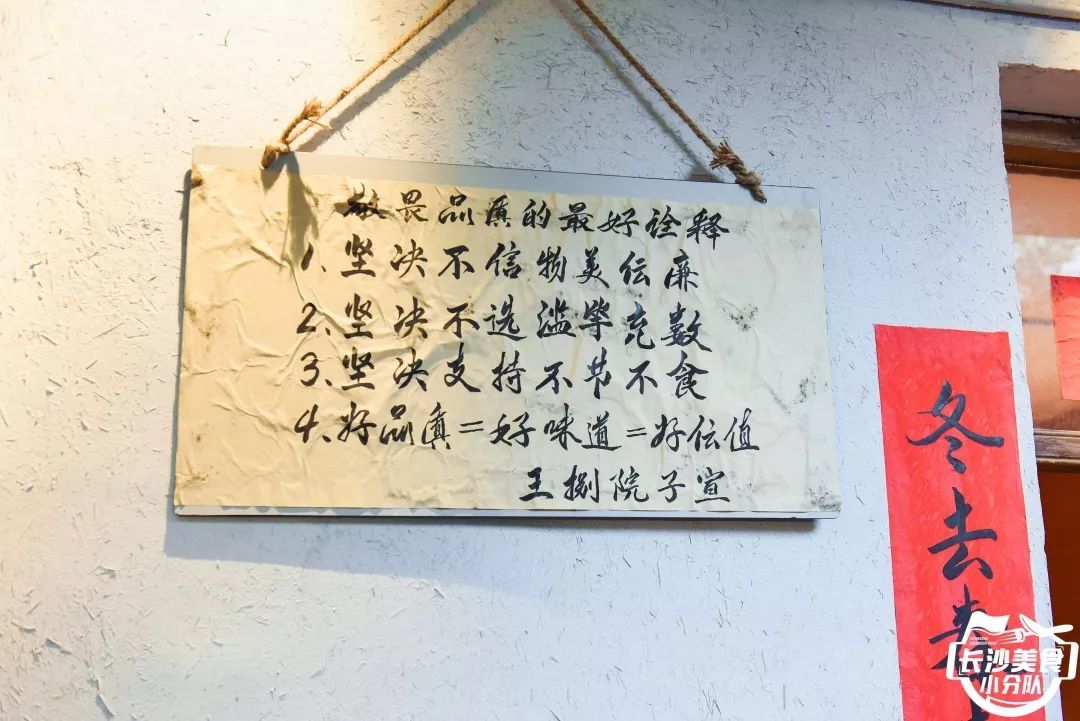 敬畏品质的最好诠释
1、坚决不信物美价廉
2、坚决不选滥竽充数
3、坚决支持不节不食
4、好品质=好味道=好价值
王捌院子宣
冬去春
长沙美食
小分队